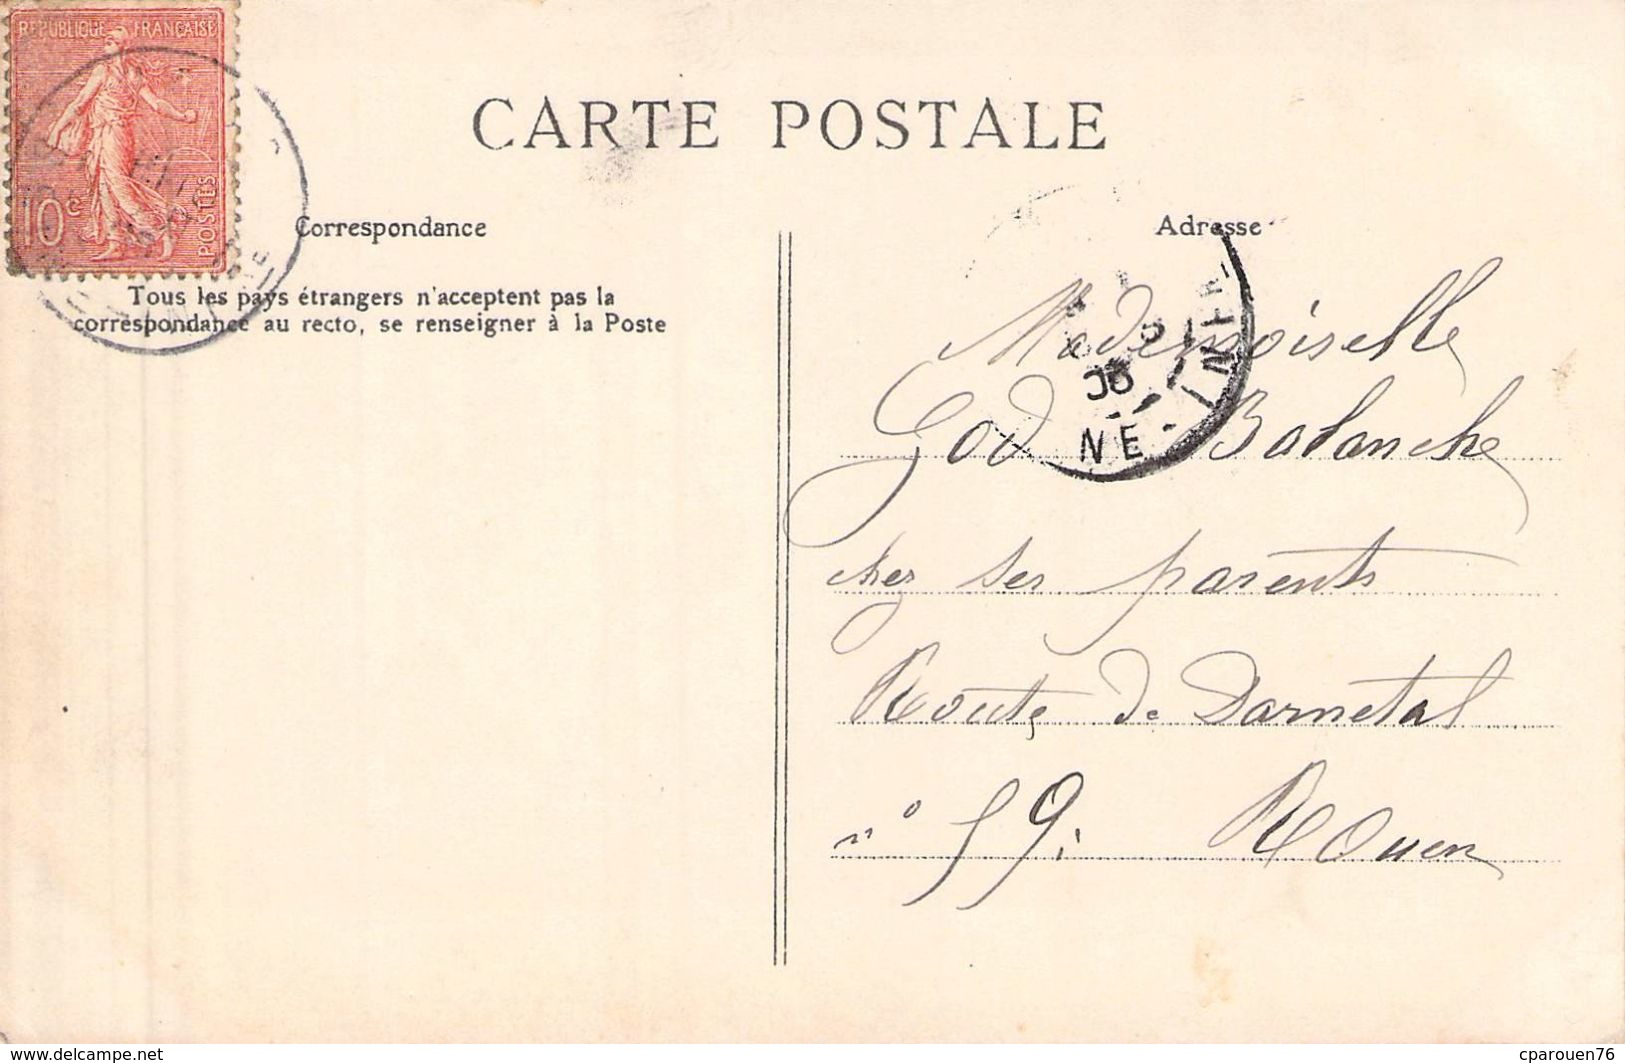 REPUBLIQUE FRANÇAISE
10c
POSTES
CARTE POSTALE
Correspondance
Adresse
Tous les pays étrangers n'acceptent pas la
correspondance au recto, se renseigner à la Poste
Mademoiselle
God Balanche
chez ses parents
Route de Darnetal
n° 59. Rouen
06
NE - INFER
www.delcampe.net
cparouen76